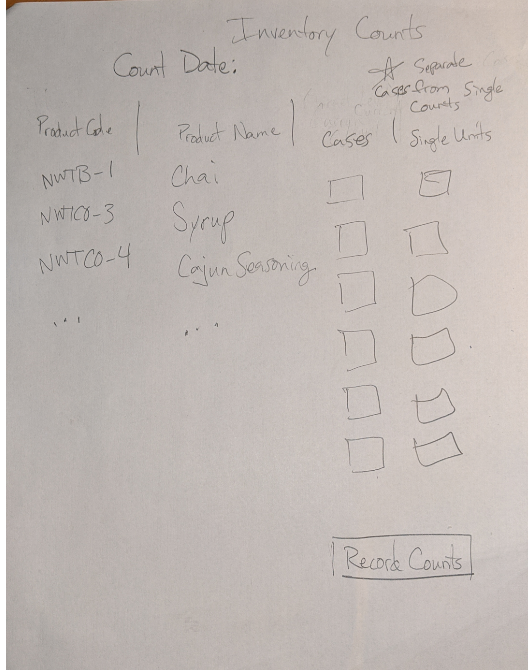 Inventory Counts
Count Date:
☆ Separate
Cases from Single
Counts
Product Code | Product Name | Cases | Single Units
NWTB-1 Chai
NWTCO-3 Syrup
NWTCO-4 Cajun Seasoning
... ...
Record Counts